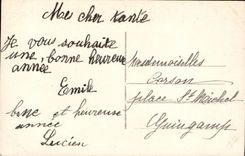 Me cher tante
Je vous souhaite
une bonne heureuse
année
Emile
bone et heureuse
année
Lucien
Mesdemoiselles
Corson
place St Michel
Guingamp